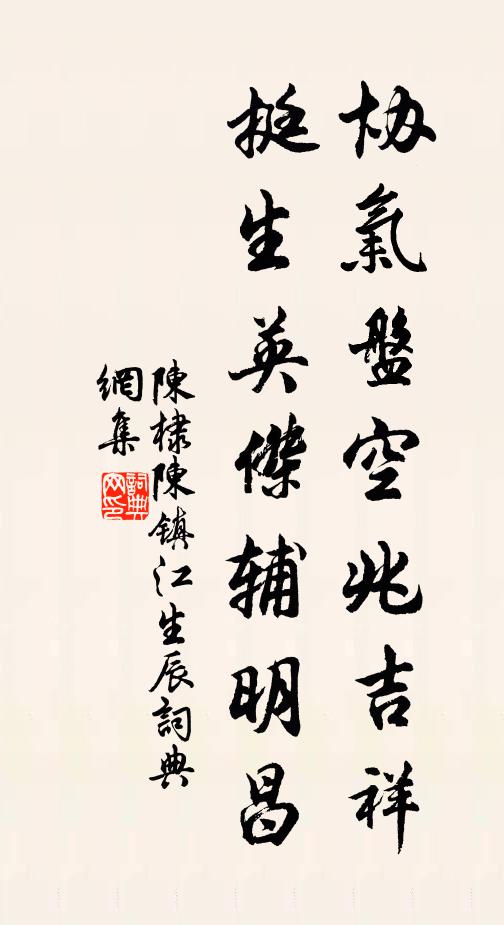 协氣盤空兆吉祥
挺生英傑辅明昌
陳棣陳镇江生辰詞典
網集
詞典
网印